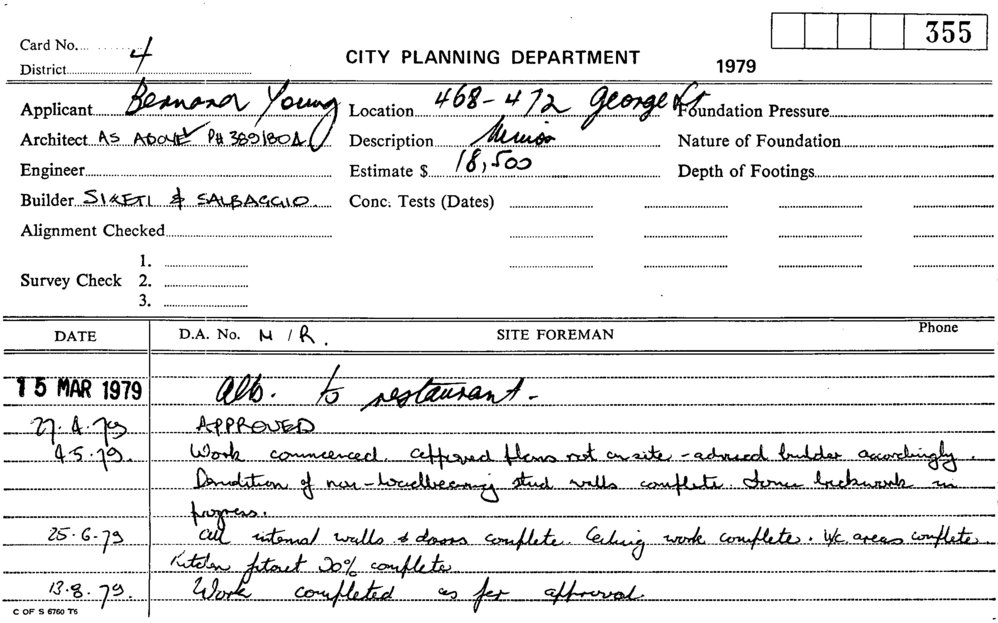 355
Card No.
District 4
CITY PLANNING DEPARTMENT
1979
Applicant Bernard Young Location 468-472 George St Foundation Pressure
Architect AS ABOVE PH 3891804 Description Minion Nature of Foundation
Engineer Estimate $ 18,500 Depth of Footings
Builder SIKETI & SALBAGGIO Conc. Tests (Dates)
Alignment Checked
1.
Survey Check 2.
3.
DATE D.A. No. N/R. SITE FOREMAN Phone
15 MAR 1979 Alb. to restaurant -
27.4.79 APPROVED
4.5.79. Work commenced. approved plans not on site - advised builder accordingly.
Demolition of non-loadbearing stud walls complete. Some brickwork in
progress.
25.6.79 all internal walls & doors complete. Ceiling work complete. W/C areas complete
Kitchen fitout 20% complete
13.8.79. Work completed as per approval.
C OF S 6760 T6